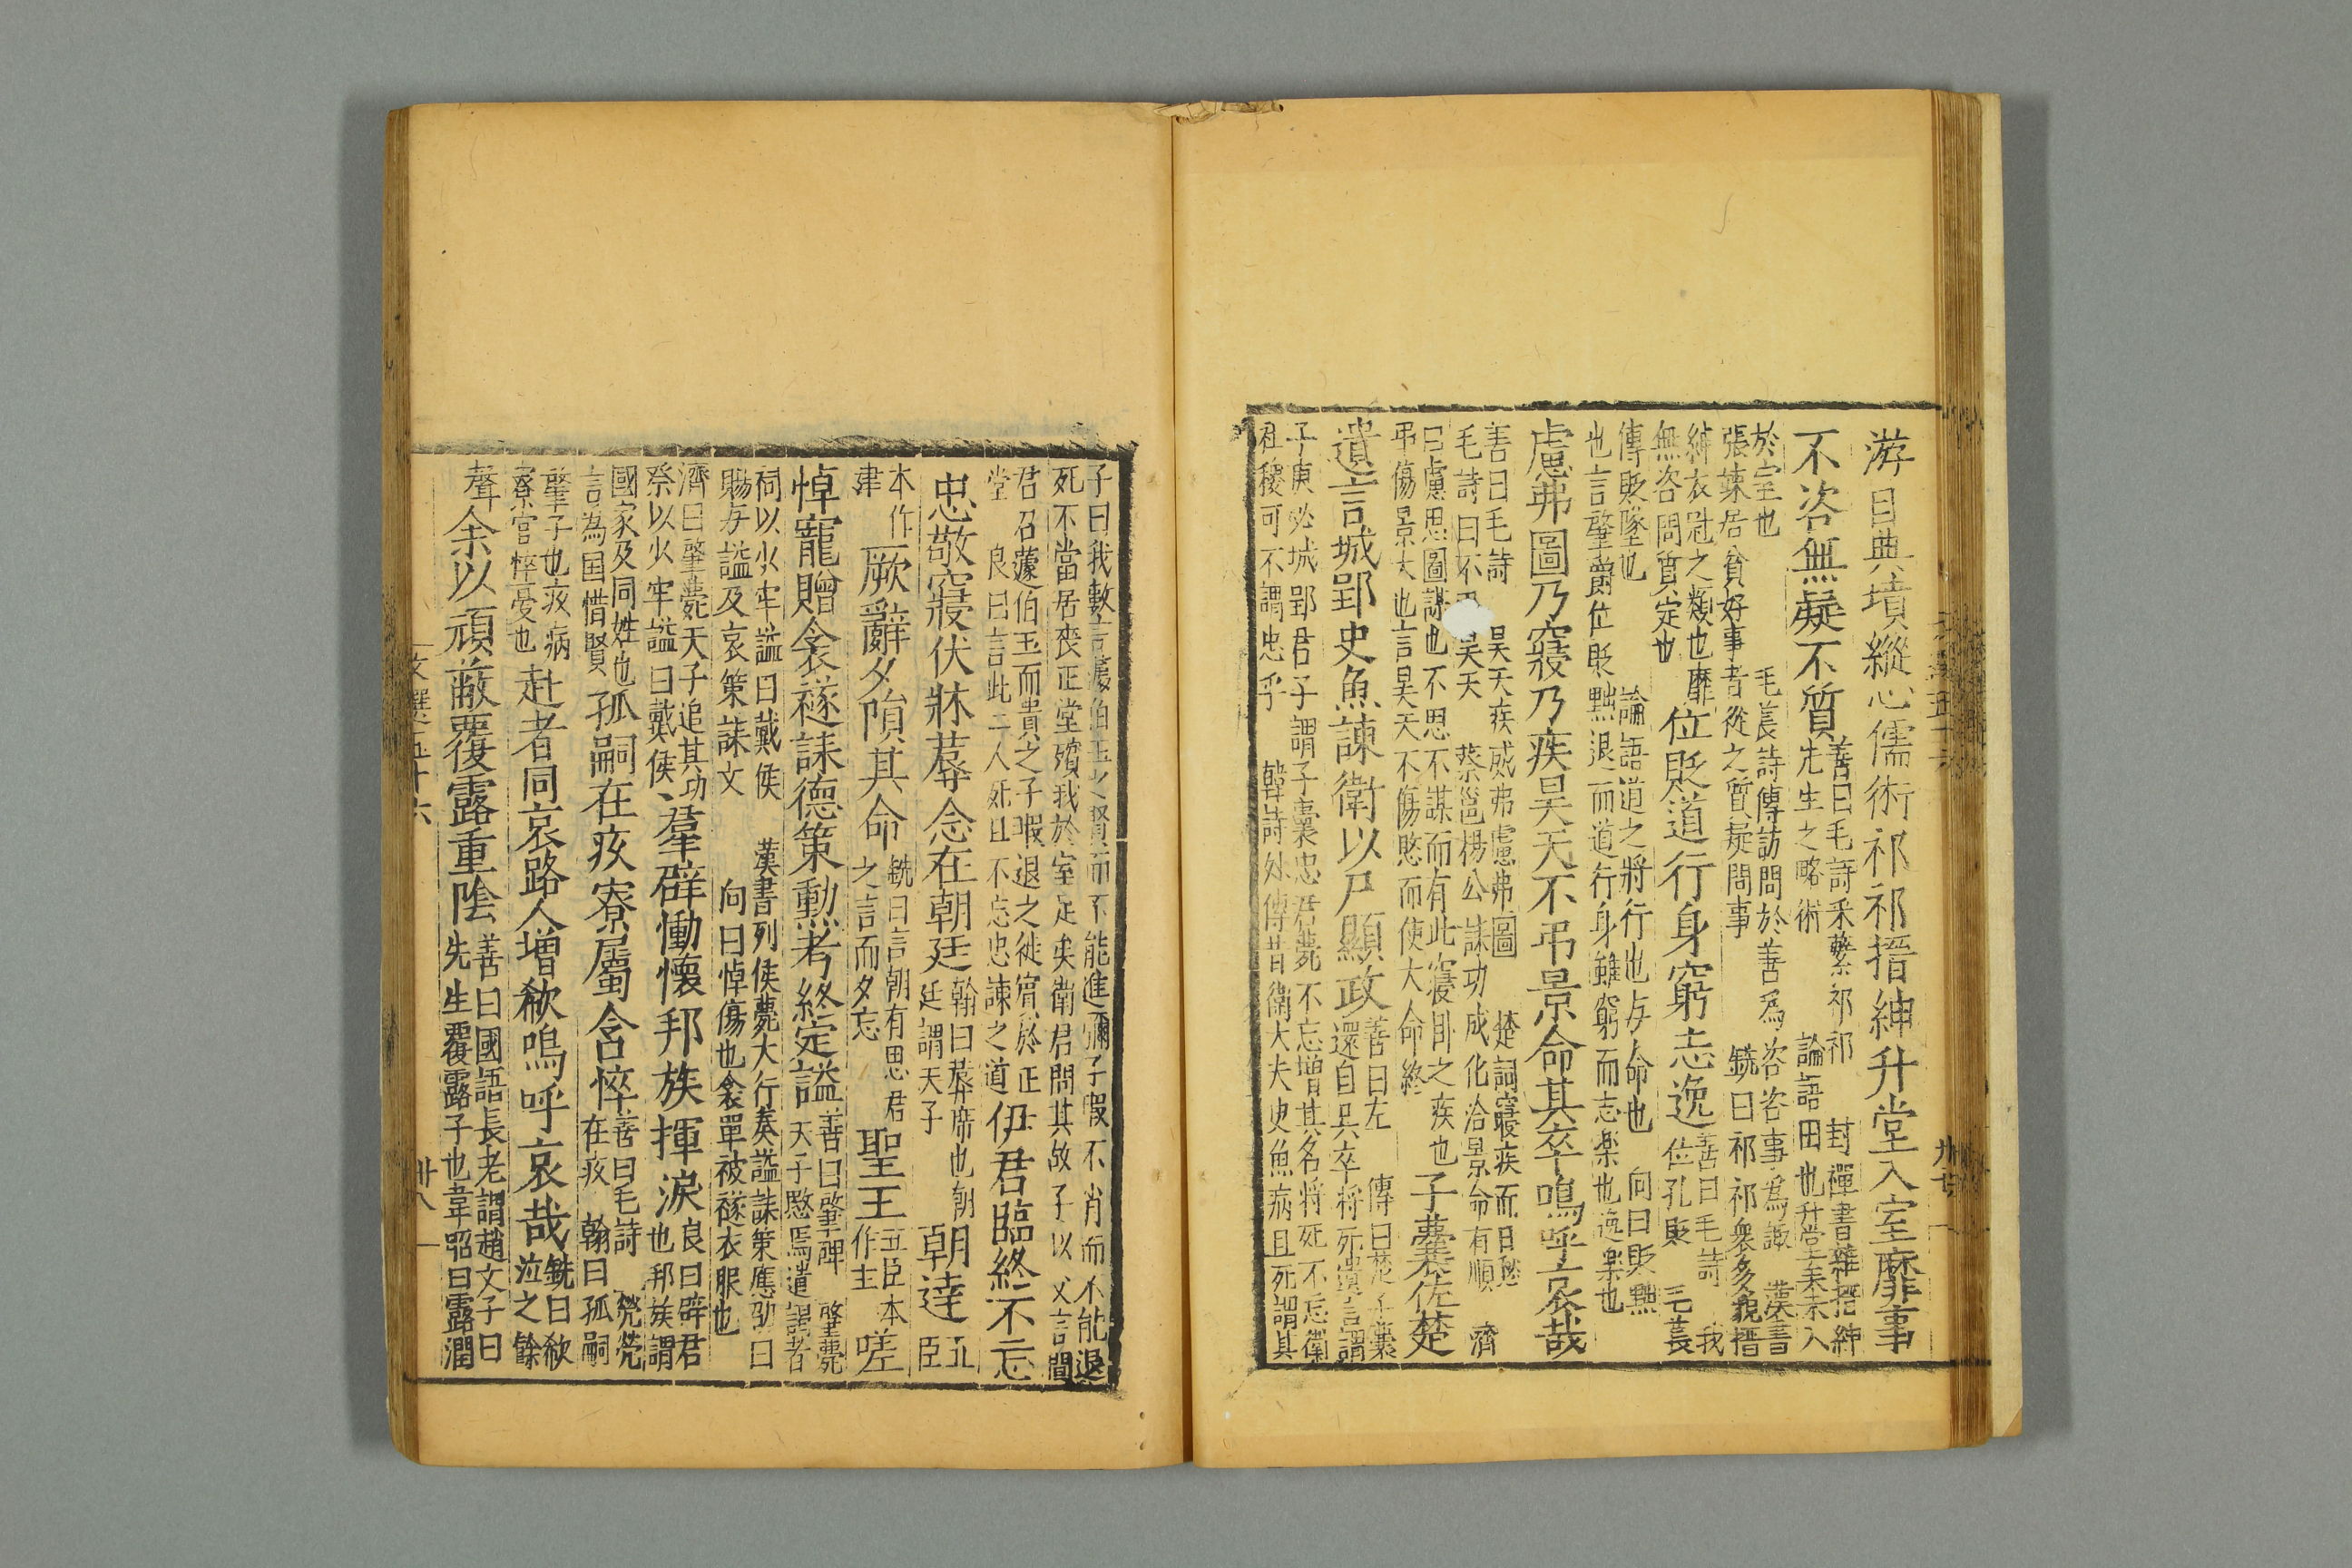 游目典墳縱心儒術祁祁搢紳升堂入室靡事
不咨無疑不質善曰毛詩采蘩祁祁 封禪書雜搢紳
先生之略術 論語由也升堂未入
於室也 毛萇詩傳訪問於善為咨咨事為諏 漢書
張竦居貧好事者從之質疑問事 銑曰祁祁衆多皃搢
紳衣冠之類也靡
無咨問質定也
位貶道行身窮志逸善曰毛詩 我
位孔貶 毛萇
傳貶墜也 論語道之將行也与命也 向曰貶黜
也言肇爵位貶黜退而道行身雖窮而志楽也逸楽也
慮弗圖乃寢乃疾昊天不弔景命其卒嗚呼哀哉
善曰毛詩 昊天疾威弗慮弗圖 楚詞寢疾而日愁
毛詩曰不弔昊天 蔡邕楊公誄功成化洽景命有順 濟
曰慮思圖謀也不思不謀而有此寢卧之疾也
弔傷景大也言昊天不傷愍而使大命終
子囊佐楚
遺言城郢史魚諫衛以尸顯政善曰左 傳曰楚子囊
還自呉卒将死遺言謂
子庚必城郢君子謂子囊忠君薨不忘增其名将死不忘衛
社稷可不謂忠乎 韓詩外傳昔衛大夫史魚病且死謂其
子曰我數言蘧伯玉之賢而不能進彌子瑕不肖而不能退
死不當居喪正堂殯我於室足矣衛君問其故子以父言聞
君召蘧伯玉而貴之子瑕退之徙殯於正
堂 良曰言此二人死且不忘忠諫之道
伊君臨終不忘
忠敬寢伏牀蓐念在朝廷翰曰蓐席也朝
廷謂天子
朝達五
臣
本作
聿
厥辭夕隕其命銑曰言朝有思君
之言而夕忘
聖王五臣本
作主
嗟
悼寵贈衾襚誄德策勳考終定謚善曰肇碑 肇薨
天子愍焉遣謁者
祠以少牢謚曰戴侯 漢書列侯薨大行奏謚誄策應劭曰
賜与謚及哀策誄文 向曰悼傷也衾單被襚衣服也
濟曰肇薨天子追其功
祭以少牢謚曰戴侯
羣辟慟懷邦族揮淚良曰辟君
也邦族謂
國家及同姓也
言為国惜賢
孤嗣在疚寮屬含悴善曰毛詩 煢煢
在疚 翰曰孤嗣
肇子也疚病
寮官悴憂也
赴者同哀路人增欷嗚呼哀哉銑曰欷
泣之餘
聲
余以頑蔽覆露重陰善曰國語長老謂趙文子曰
先生覆露子也韋昭曰露潤
文選五十六
卅八